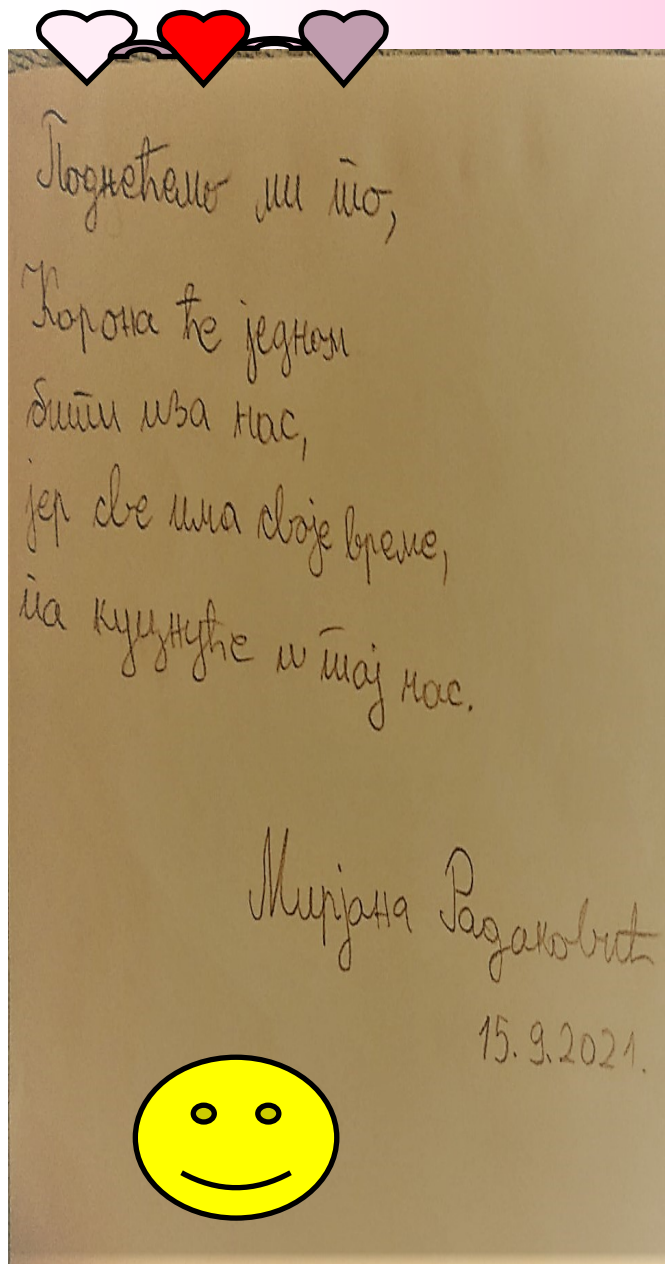 Поднећемо ми то,
Корона ће једном
бити иза нас,
јер све има своје време,
па куцнуће и тај час.
Мирјана Радаковић
15.9.2021.